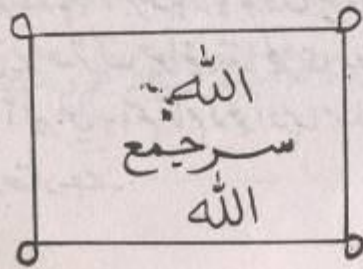 الله
سرجيمع
الله